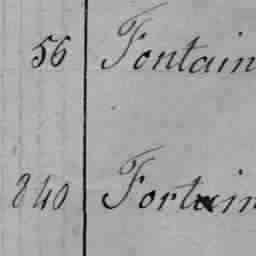 56 Fontain
840 Fortin